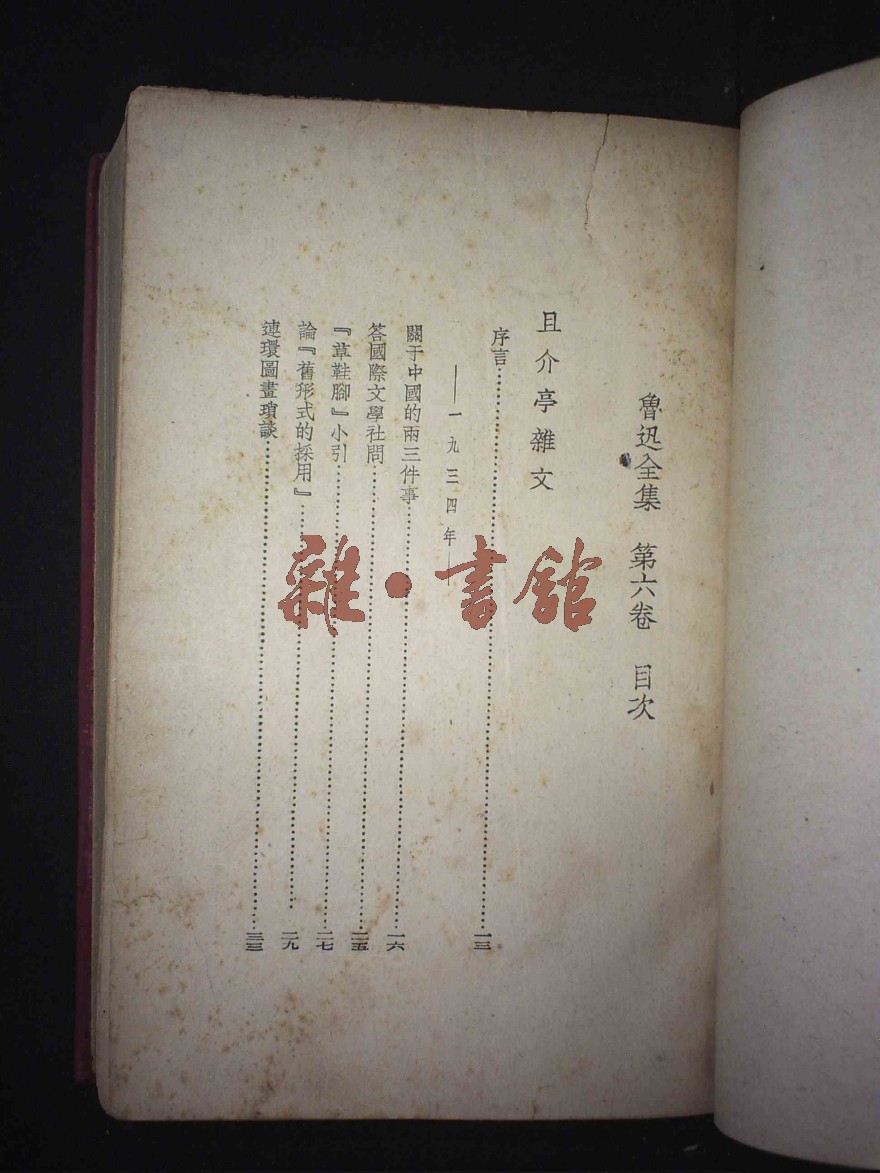 魯迅全集　第六卷　目次
且介亭雜文
序言…………一三
——一九三四年——
關于中國的兩三件事…………一六
答國際文學社問…………二五
『草鞋腳』小引…………二七
論『舊形式的採用』…………二九
連環圖畫瑣談…………三三
雜·書館